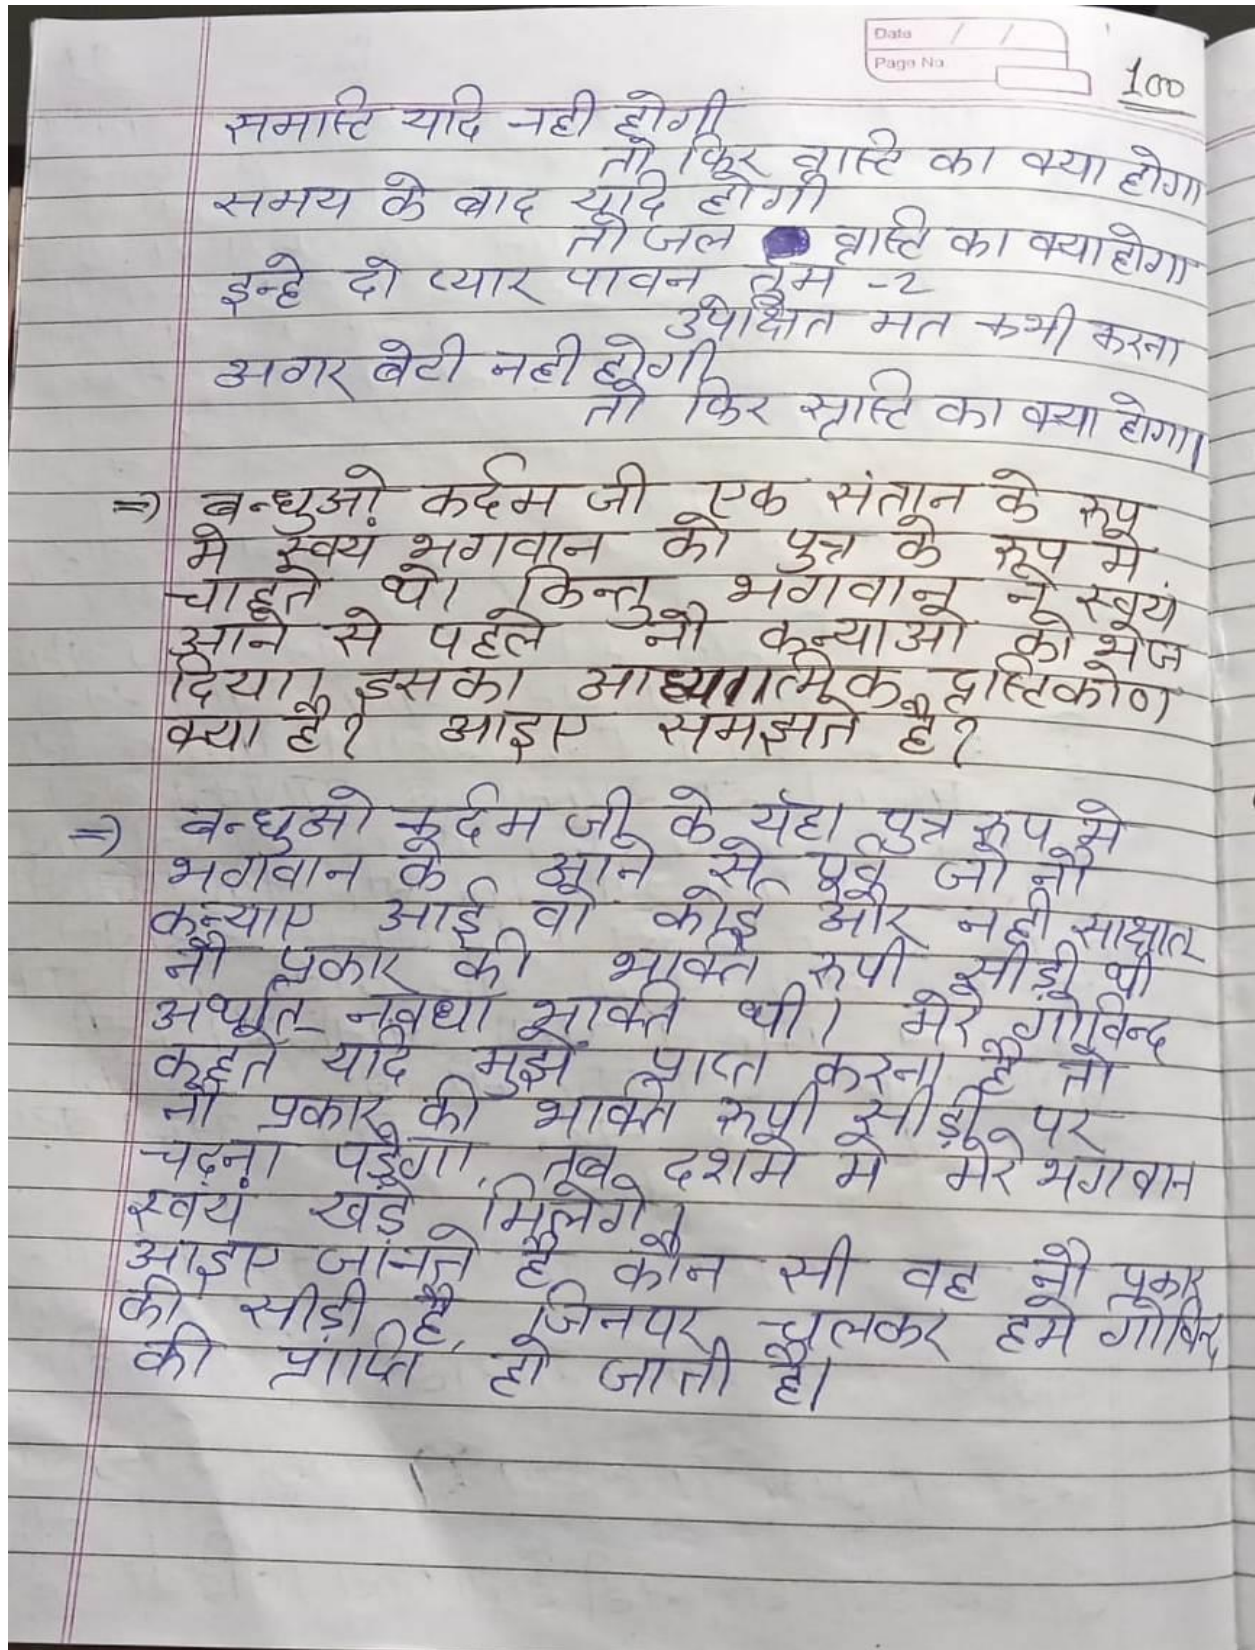 Date / /
Page No.
100
समष्टि यदि नही होगी
तो फिर व्रष्टि का क्या होगा
समय के बाद यदि होगी
तो जल व्रष्टि का क्या होगा
इन्हे दो प्यार पावन तुम -2
उपेक्षित मत कभी करना
अगर बेटी नही होगी
तो फिर स्रष्टि का क्या होगा।
=) बन्धुओ कर्दम जी एक संतान के रूप
मे स्वयं भगवान को पुत्र के रूप मे
चाहते थे। किन्तु भगवान ने स्वयं
आने से पहले नौ कन्याओ को भेज
दिया। इसका आध्यात्मिक द्रष्टिकोण
क्या है? आइए समझते है?
=) बन्धुओ कर्दम जी के यहा पुत्र रूप मे
भगवान के आने से पूर्व जो नौ
कन्याए आई वो कोई और नही साक्षात
नौ प्रकार की भक्ति रुपी सीड़ी थी
अर्थात् नवधा भक्ति थी। मेरे गोविन्द
कहते यदि मुझे प्राप्त करना है तो
नौ प्रकार की भक्ति रुपी सीड़ी पर
चढ़ना पड़ेगा, तब दशमे मे मेरे भगवान
स्वयं खड़े मिलेगे।
आइए जानते है कौन सी वह नौ प्रकार
की सीड़ी है, जिनपर चलकर हमे गोविन्द
की प्राप्ति हो जाती है।